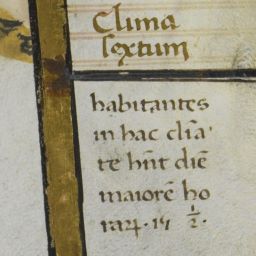 Clima
sextum
habitantes
in hac clia
te hñt diē
maiorē ho
raꝝ · 15 1/2 ·